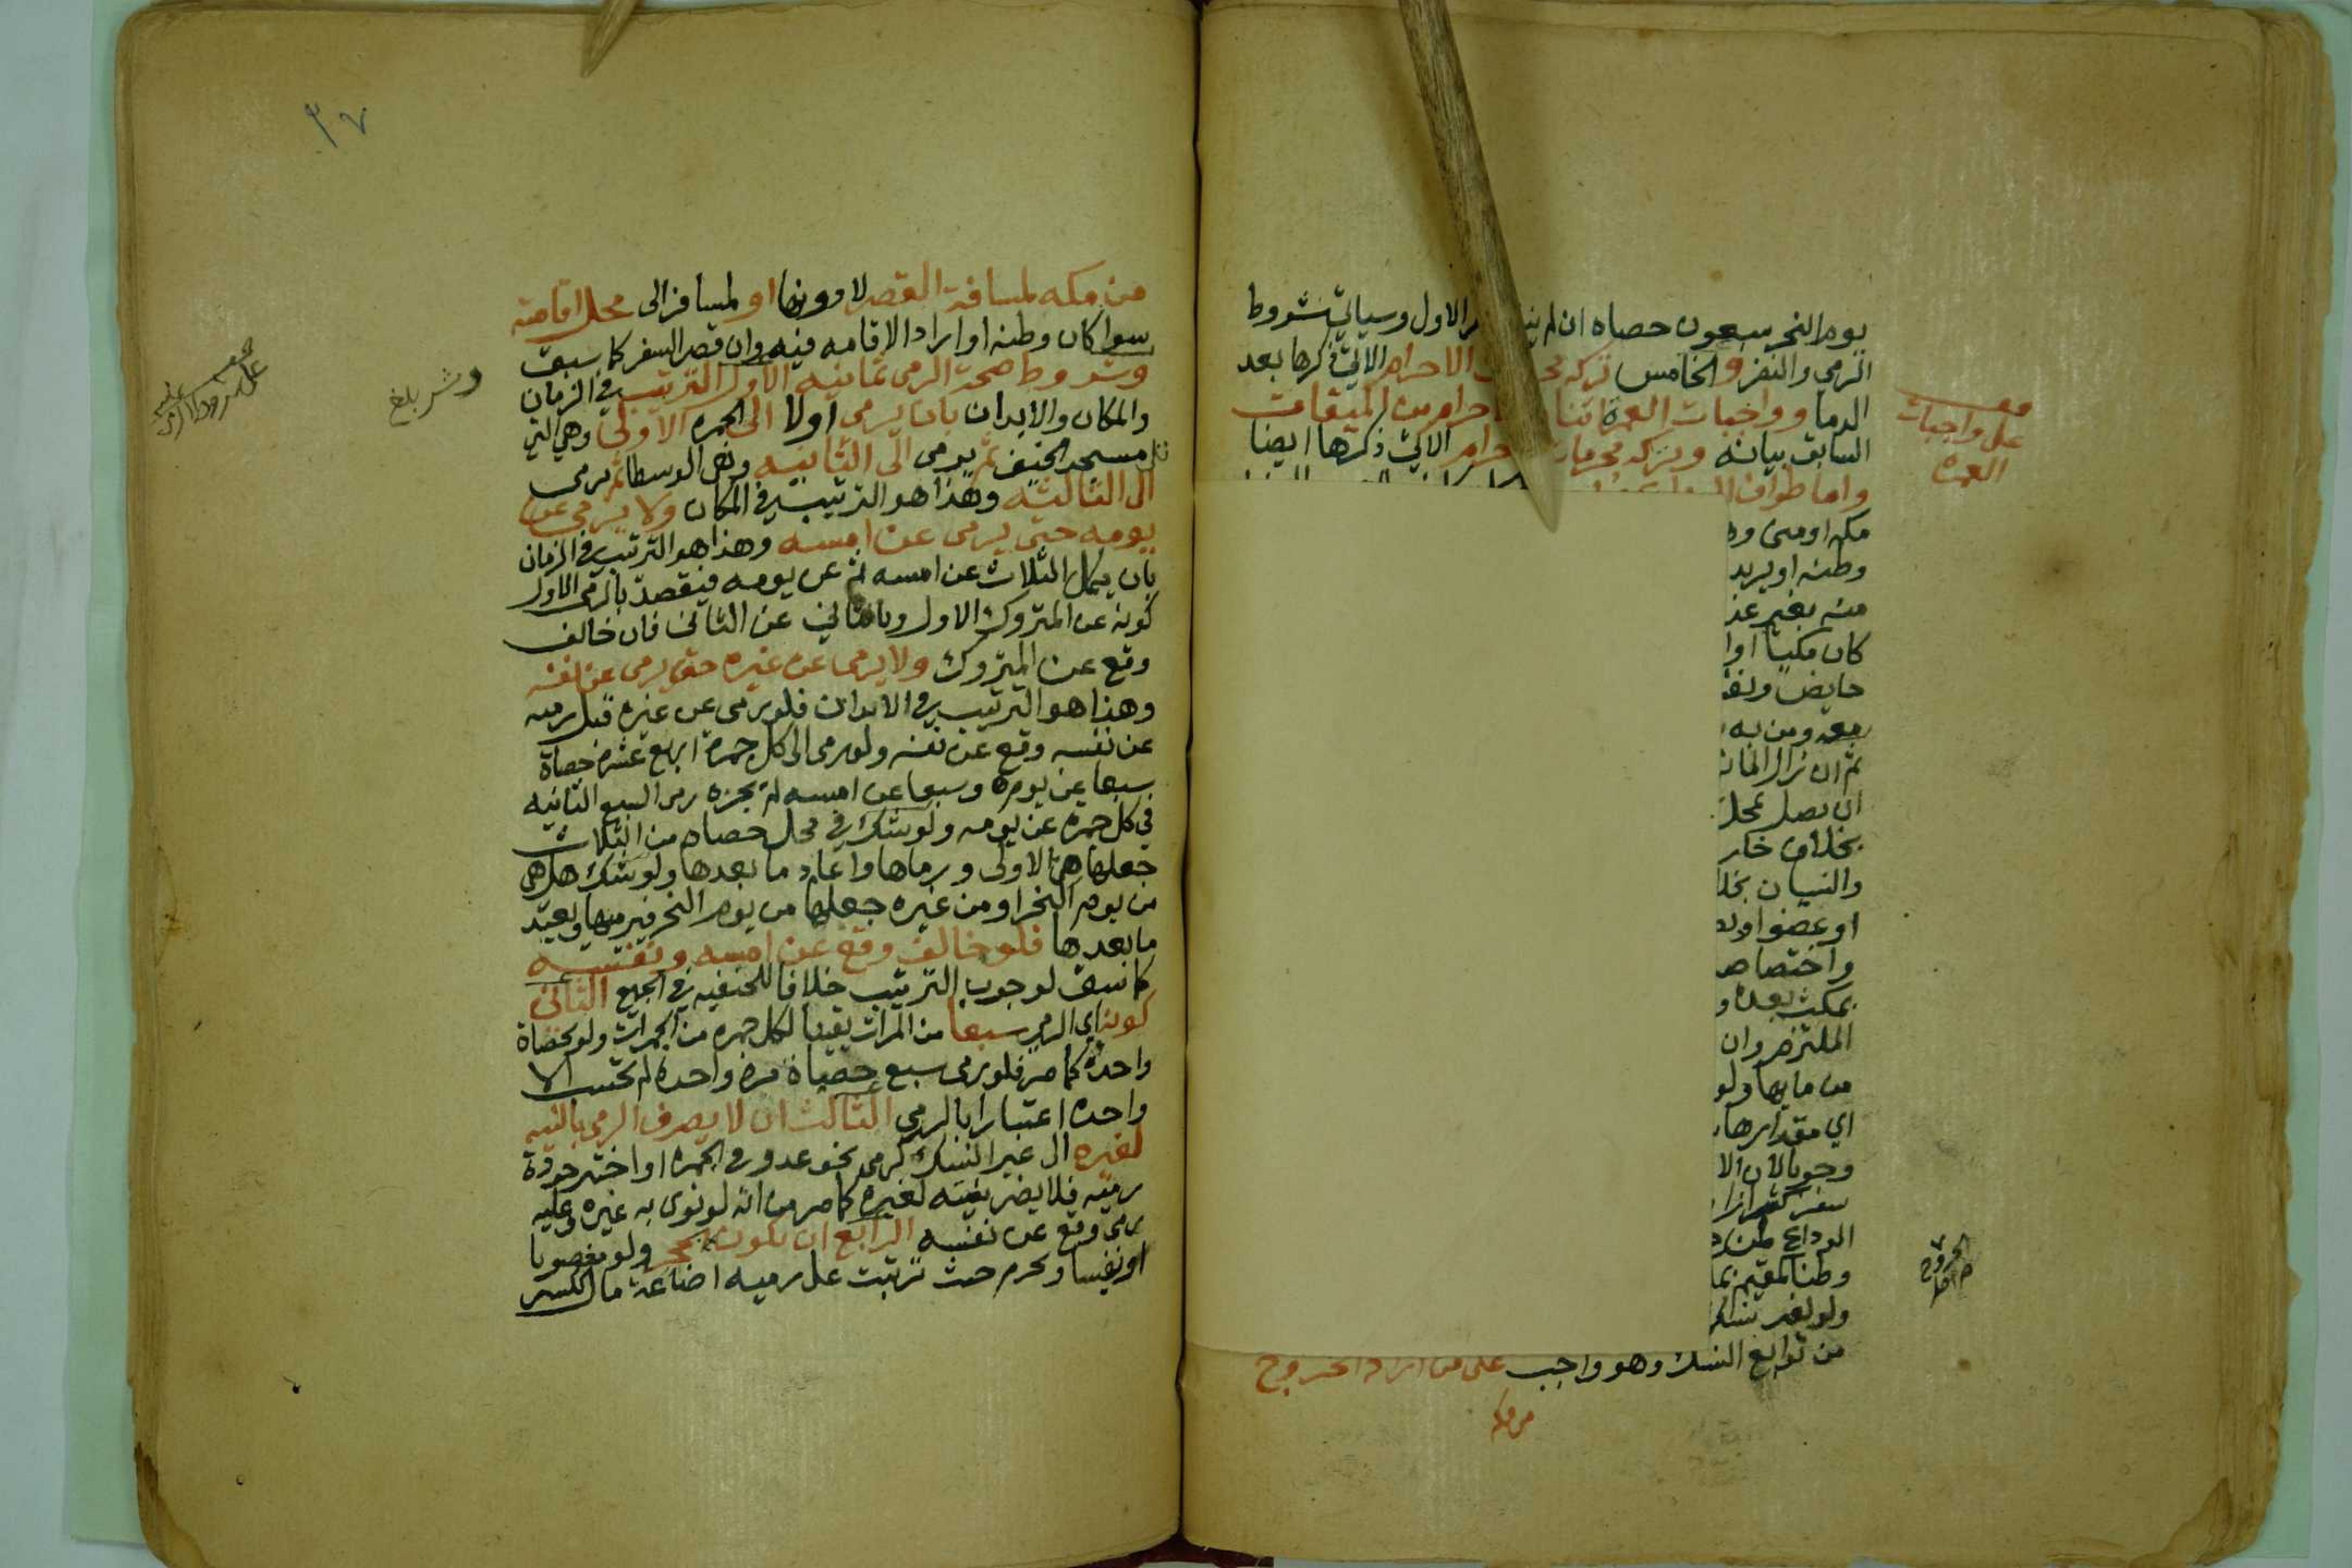 يوم النحر سبعون حصاه ان لم الاول وسياتي شروط
الرمي والنفر والخامس تركه الاحرام الاتي ذكرها بعد
الدما وواجبات العمرة من الميقات
السابق بيانه وتركه محرمات الاتي ذكرها ايضا
واما طواف
مكه او منى
وطنه او يريد
منه بغير عذ
كان مكيا اوا
حايض ونف
معه ومن به
ثم ان زال المان
ان يصل محل
بخلاف خا
والنسيان بخلا
او عضو او
واختصاص
بمكث بعده و
الملتزم وان
من مايها ولو
اي مقدارها
وجوبا لان الا
سفر
الوداع
وطنا
ولو لغير نسك
من توابع النسك وهو واجب على من اراد الخروج
من مكه
على واجبات
العمره
٣٧
من مكه لمسافة القصر لا دونها او لمسافر الى محل اقامته
سوا كان وطنه او اراد الاقامه فيه وان قصر السفر كما سبق
وشروط صحة الرمي ثمانيه الاول الترتيب في الزمان
والمكان والابدان بان يرمي اولا الى الجمره الاولى وهي التي
تلي مسجد الخيف ثم يرمي الى الثانيه وهى الوسطا ثم يرمى
الى الثالثه وهذا هو الترتيب في المكان ولا يرمي عن
يومه حتى يرمى عن امسه وهذا هو الترتيب في الزمان
بان يكمل الثلاث عن امسه ثم عن يومه فيقصد بالرمى الاول
كونه عن المتروك الاول وبالثاني عن الثانى فان خالف
وقع عن المتروك ولا يرمى عن غيره حتى يرمى عن نفسه
وهذا هو الترتيب في الابدان فلو رمى عن غيره قبل رميه
عن نفسه وقع عن نفسه ولو رمى الى كل جمرة اربع عشرة حصاة
سبعا عن يومه وسبعا عن امسه لم يجزه رمى السبع الثانيه
في كل جمره عن يومه ولو شك في محل حصاه من الثلاث
جعلها من الاولى ورماها واعاد ما بعدها ولو شك هل هى
من يوم النحر او من غيره جعلها من يوم النحر فيرميها ويعيد
ما بعدها فلو خالف وقع عن امسه ونفسه
كما سبق لوجوب الترتيب خلافا للحنفيه في الجميع الثانى
كونه اي الرمي سبعا من المرات يقينا لكل جمره من الجمرات ولو بحصاة
واحدة كما مر فلو رمى سبع حصاة مرة واحدة لم تحتسب الا
واحده اعتبارا بالرمي الثالث ان لا يصرف الرمي بالنيه
لغيره الى غير النسك كرمى نحو عدو في الجمره او اختبر جودة
رميه فلا يضر بنيته لغيره كما مر من انه لو نوى به غيره وعليه
رمى وقع عن نفسه الرابع ان يكون بحجر ولو مغصوبا
او نفيسا ويحرم حيث ترتبت على رميه اضاعة مال لكسر
بلغ